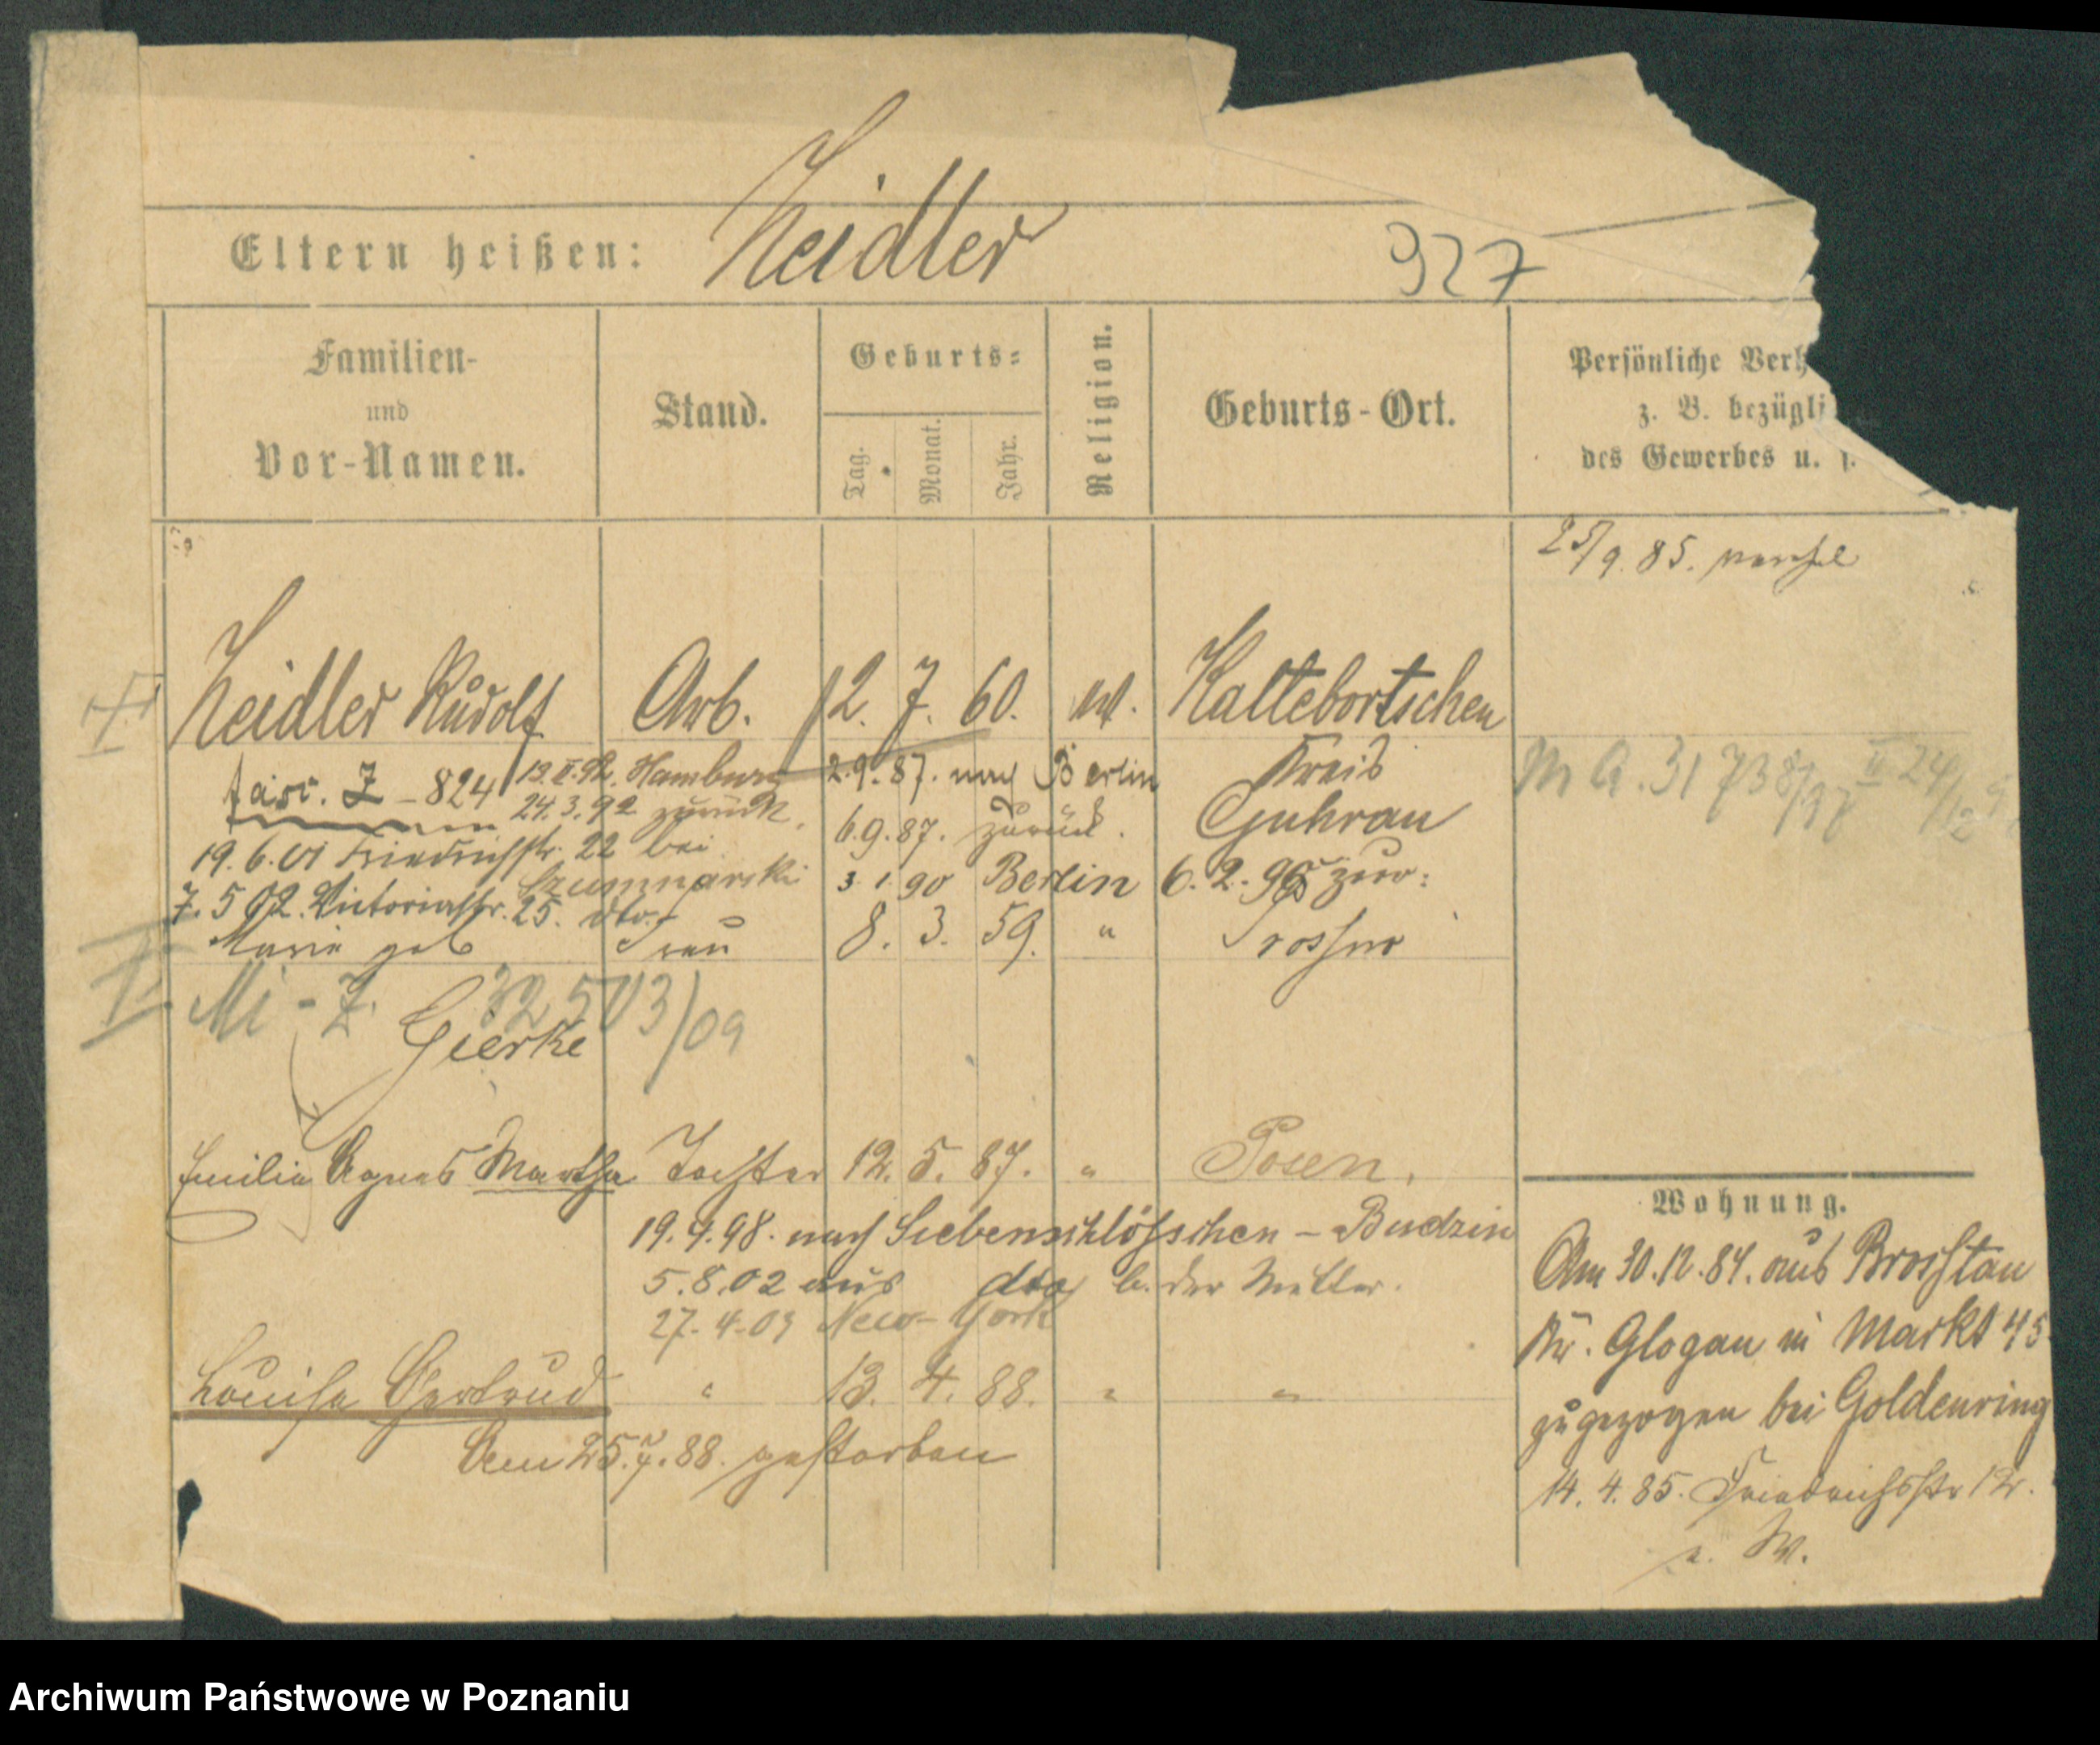 Eltern heißen: Zeidler 927
Familien-
und
Vor-Namen.
Stand.
Geburts-
Tag.
Monat.
Jahr.
Religion.
Geburts-Ort.
Persönliche Verh
z. B. bezügli
des Gewerbes u.
25/9. 85.
Zeidler Rudolf Arb. 12. 7. 60. Kaltebortschen
Kreis
Guhrau
fasc. Z - 824
Hamburg 2.9.87. nach Berlin
24.3.92 zurück. 6.9.87. zurück.
19.6.01 Friedrichstr. 22 bei
3 1 90 Berlin 6.2. zur:
7.5 02. Victoriastr. 25. dto.
Marie geb Frau 8. 3. 59. "
M A. 31738/97 II 24/12
I
II
Mi - Z. 32503/09
Gierke
Emilie Agnes Martha Tochter 12. 5. 87. " Posen.
19.4.98. nach Siebenschlösschen - Budzin
5.8.02 aus dto b. der Mutter.
27.4.03 New-York
Louise Gertrud " 13. 4. 88. " "
Am 25.7.88. gestorben
Wohnung.
Am 30.12.84. aus Brostau
Kr. Glogau in Markt 45
zugezogen bei Goldenring
14. 4. 85. Friedrichsstr 12.
Archiwum Państwowe w Poznaniu